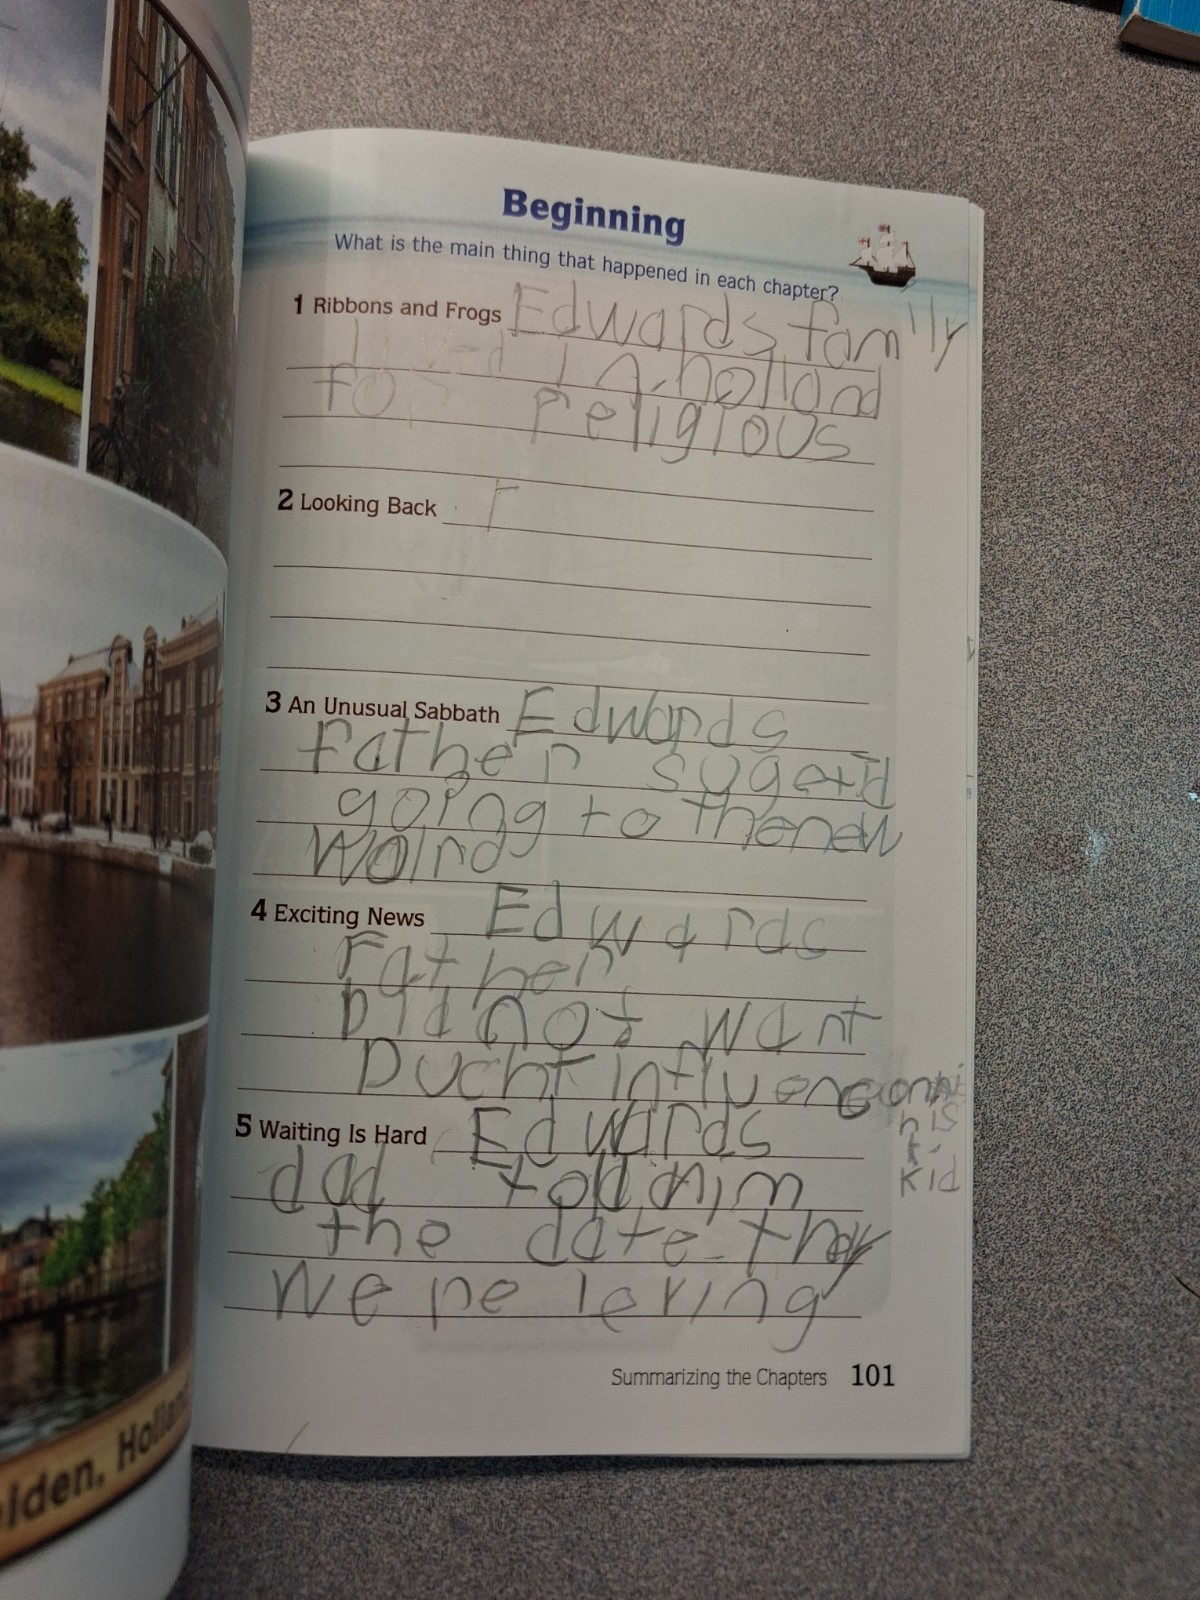 Beginning
What is the main thing that happened in each chapter?
1 Ribbons and Frogs Edwards family
lived in holland
for religious
2 Looking Back
3 An Unusual Sabbath Edwards
father
going to thenew
wolrd
4 Exciting News Edwards
Father
Did not want
Ducht
his
kid
5 Waiting Is Hard Edwards
dad told him
the date they
were leving
Summarizing the Chapters 101